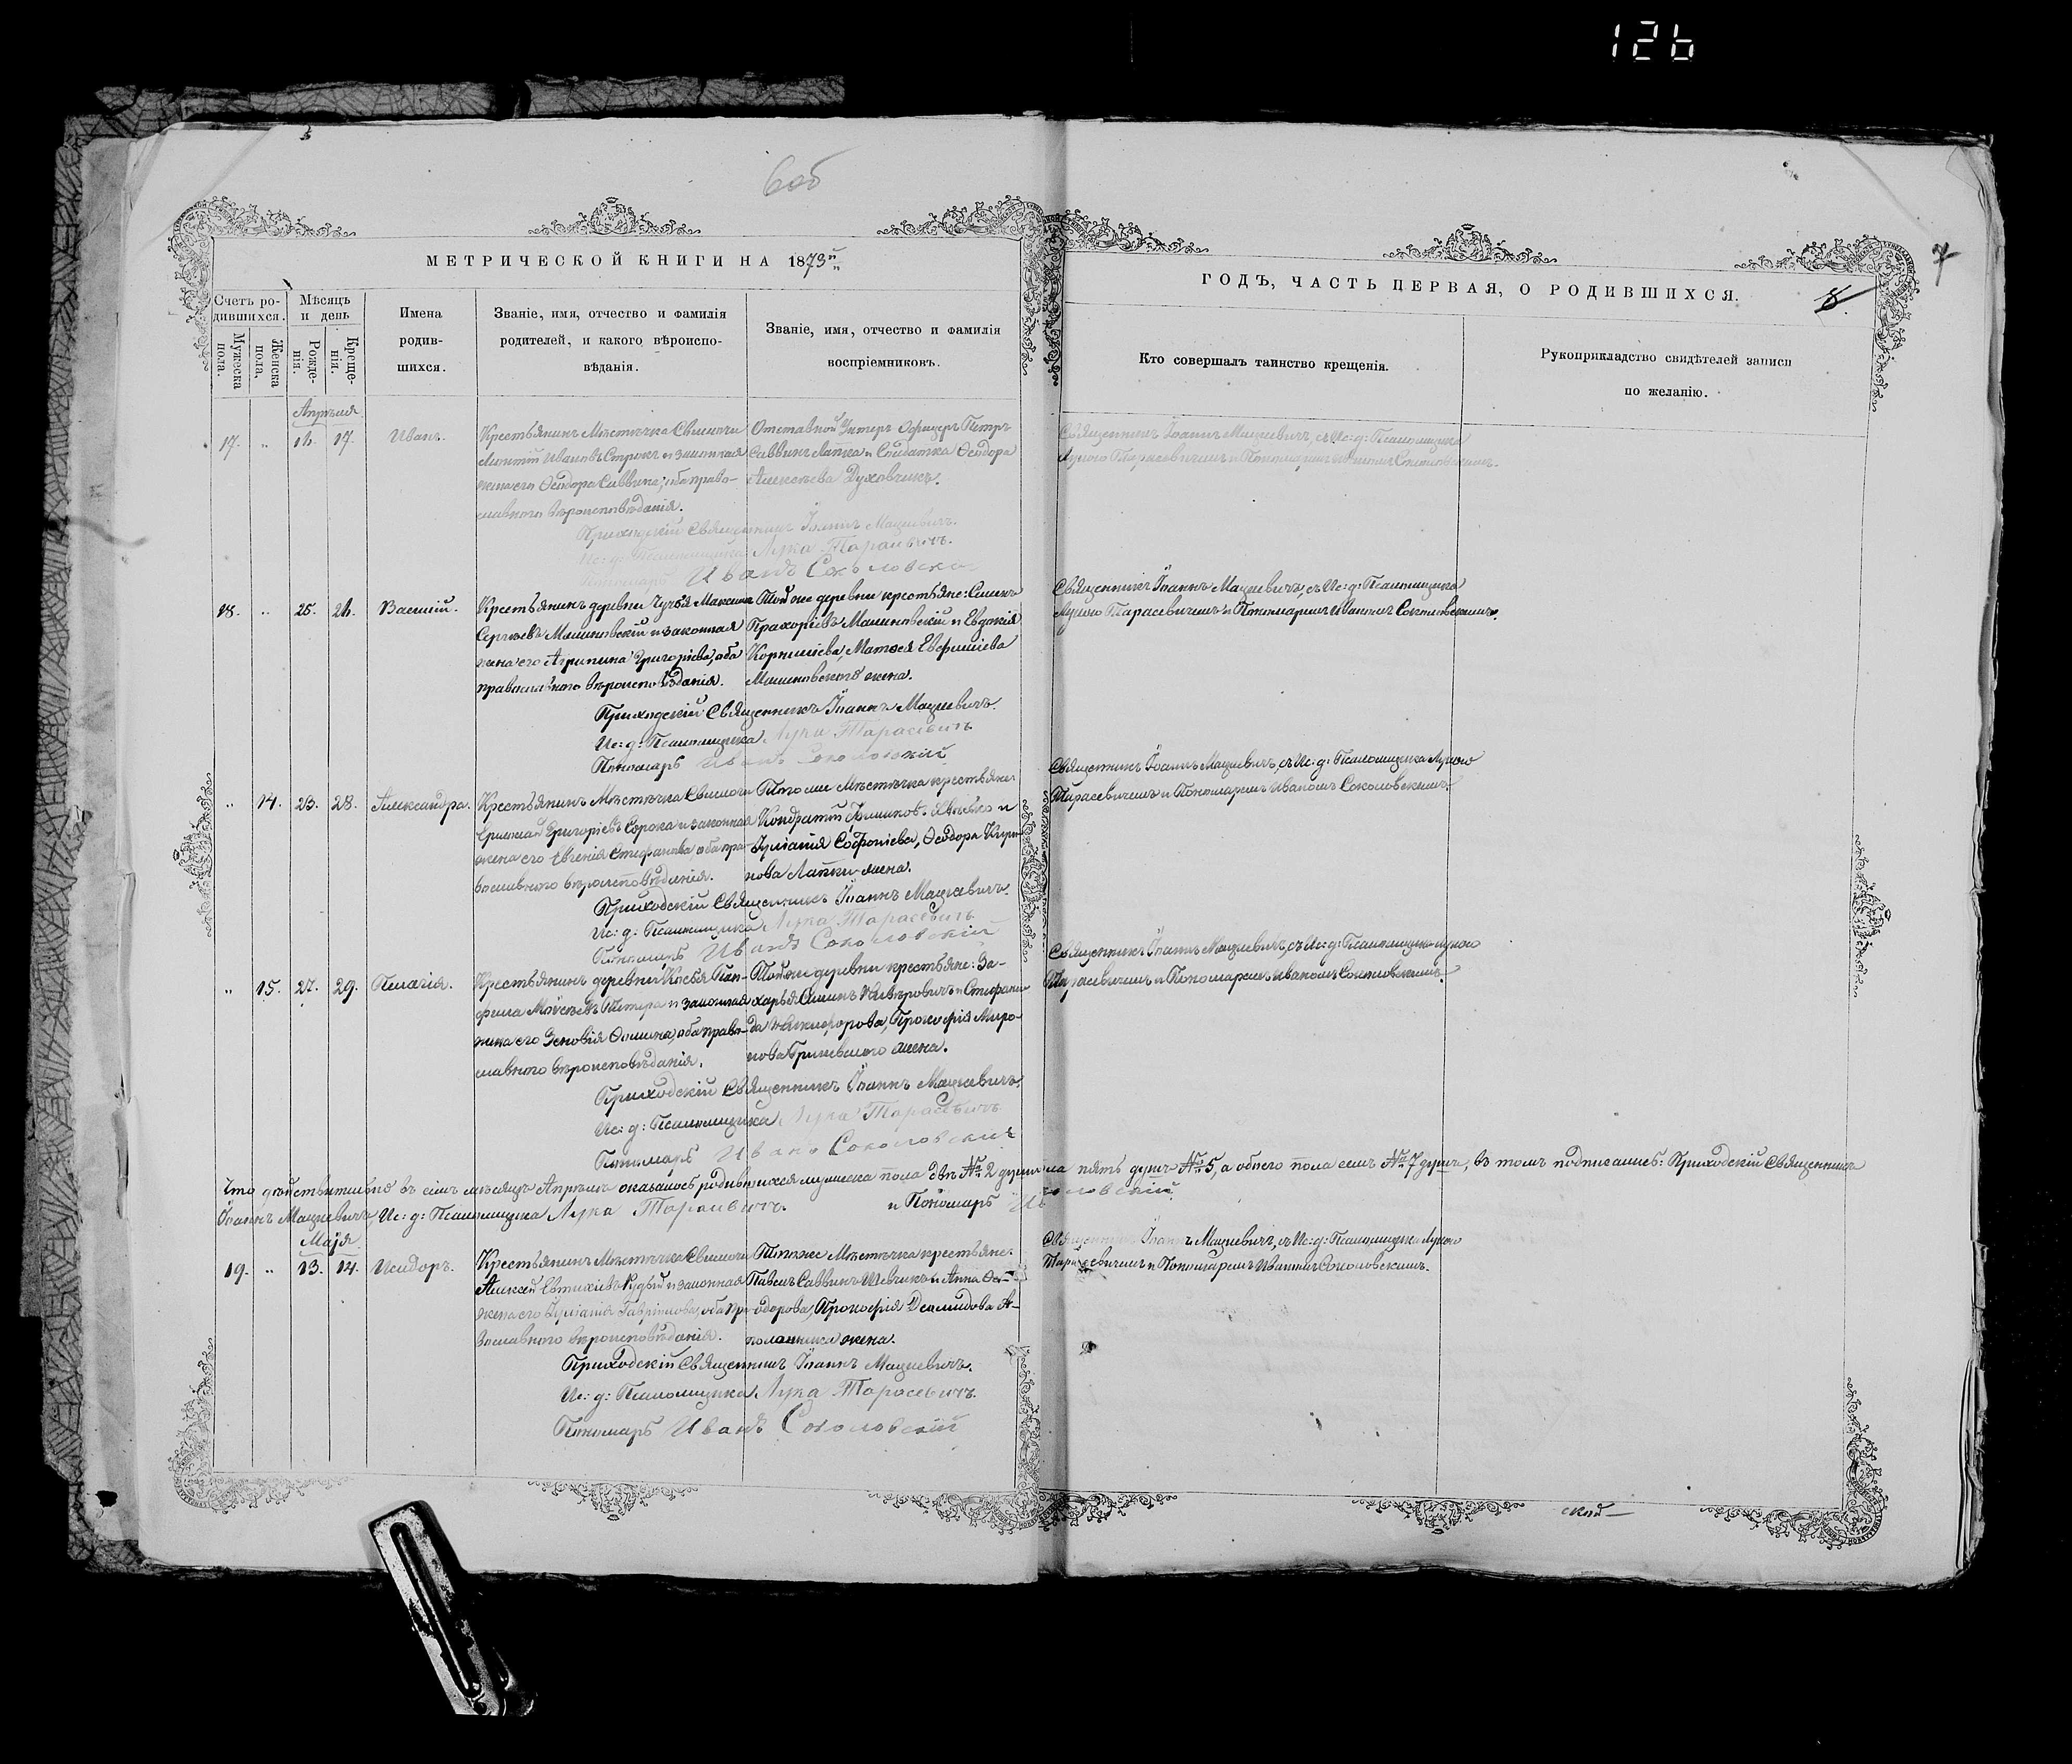 126
6об
7
МЕТРИЧЕСКОЙ КНИГИ НА 1873й
ГОДЪ, ЧАСТЬ ПЕРВАЯ, О РОДИВШИХСЯ.
Счетъ ро-
дившихся.
Мужеска
пола.
Женска
пола,
Мѣсяцъ
и день
Рожде-
нія.
Креще-
нія.
Имена
родив-
шихся.
Званіе, имя, отчество и фамилія
родителей, и какого вѣроиспо-
вѣданія.
Званіе, имя, отчество и фамилія
воспріемниковъ.
Кто совершалъ таинство крещенія.
Рукоприкладство свидѣтелей записи
по желанію.
Апрѣля
17. " 17. Иванъ.
Крестьянинъ Мѣстечка Свислочи
Ивановъ Строкъ и законная
жена его Ѳеодора Саввина, оба право-
славного вѣроисповѣданія.
Отставной Унтеръ Офицеръ Петръ
Саввинъ Лапка и Солдатка Ѳеодора
Алексѣева Духовникъ.
Священникъ Іоаннъ Мацкевичъ, съ Ис: д: Псаломщика
Лукою Тарасевичемъ и Пономаремъ Иваномъ Соколовскимъ.
Приходскій Священникъ Іоаннъ Мацкевичъ.
Ис: д: Псаломщика Лука Тарасевичъ.
Пономарь Иванъ Соколовскій
18. " 25. 26. Василій.
Крестьянинъ деревни Максимъ
Сергѣевъ Малиновскій и законная
жена его Агрипина Григоріева, оба
православного вѣроисповѣданія.
Той же деревни крестьяне: Семенъ
Прохоріевъ Малиновскій и Евдокія
Корниліева, Матвея Евфиміева
Малиновского жена.
Священникъ Іоаннъ Мацкевичъ, съ Ис: д: Псаломщика
Лукою Тарасевичемъ и Пономаремъ Иваномъ Соколовскимъ.
Приходскій Священникъ Іоаннъ Мацкевичъ.
Ис: д: Псаломщика Лука Тарасевичъ
Пономарь Иванъ Соколовскій
" 14. 23. 28. Александра.
Крестьянинъ Мѣстечка Свислочи
Григоріевъ Сорока и законная
жена его Евгенія Стефанова оба пра-
вославного вѣроисповѣданія.
Того же Мѣстечка крестьяне:
Кондратій и
Іуліанія Софоніева, Ѳеодора Кири-
лова Лапки жена.
Священникъ Іоаннъ Мацкевичъ, съ Ис: д: Псаломщика Лукою
Тарасевичемъ и Пономаремъ Иваномъ Соколовскимъ.
Приходскій Священникъ Іоаннъ Мацкевичъ.
Ис: д: Псаломщика Лука Тарасевичъ
Пономарь Иванъ Соколовскій
" 15. 27. 29. Пелагія.
Крестьянинъ деревни Пан-
фила Моисеевъ и законная
жена его Зеновія Ѳомина, оба право-
славного вѣроисповѣданія.
Той же деревни крестьяне: За-
харъя и Стефани-
да Никифорова, Прокофія Миро-
нова жена.
Священникъ Іоаннъ Мацкевичъ, съ Ис: д: Псаломщика Лукою
Тарасевичемъ и Пономаремъ Иваномъ Соколовскимъ.
Приходскій Священникъ Іоаннъ Мацкевичъ.
Ис: д: Псаломщика Лука Тарасевичъ
Пономарь Иванъ Соколовскій
Что дѣйствительно въ семъ мѣсяцѣ Апрѣлѣ оказалось родившихся мужеска пола двѣ № 2 души пять душъ № 5, а обоего пола семь № 7 душъ, въ томъ подписались: Приходскій Священникъ
Іоаннъ Мацкевичъ, Ис: д: Псаломщика Лука Тарасевичъ. и Пономарь
Маія
19. " 13. 14. Исидоръ.
Крестьянинъ Мѣстечка Свислочи
Алексѣй Евтихіевъ и законная
жена его Іуліанія Гавріилова, оба пра-
вославного вѣроисповѣданія.
Того же Мѣстечка крестьяне:
Павелъ Саввинъ Шевчикъ и Анна Ѳе-
одорова, Прокофія Демидова А-
жена.
Священникъ Іоаннъ Мацкевичъ, съ Ис: д: Псаломщика Лукою
Тарасевичемъ и Пономаремъ Иваномъ Соколовскимъ.
Приходскій Священникъ Іоаннъ Мацкевичъ.
Ис: д: Псаломщика Лука Тарасевичъ.
Пономарь Иванъ Соколовскій